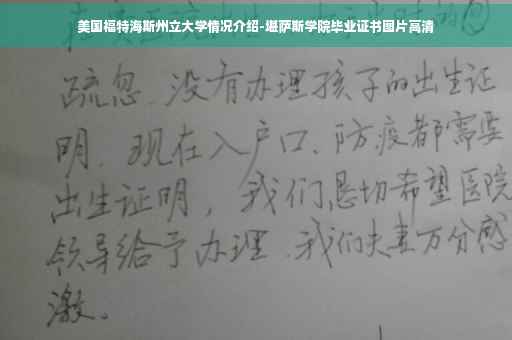 美国福特海斯州立大学情况介绍-堪萨斯学院毕业证书图片高清
疏忽、没有办理孩子的出生证
明、现在入户口、防疫都需要
出生证明，我们恳切希望医院
领导给予办理、我们夫妻万分感
激。